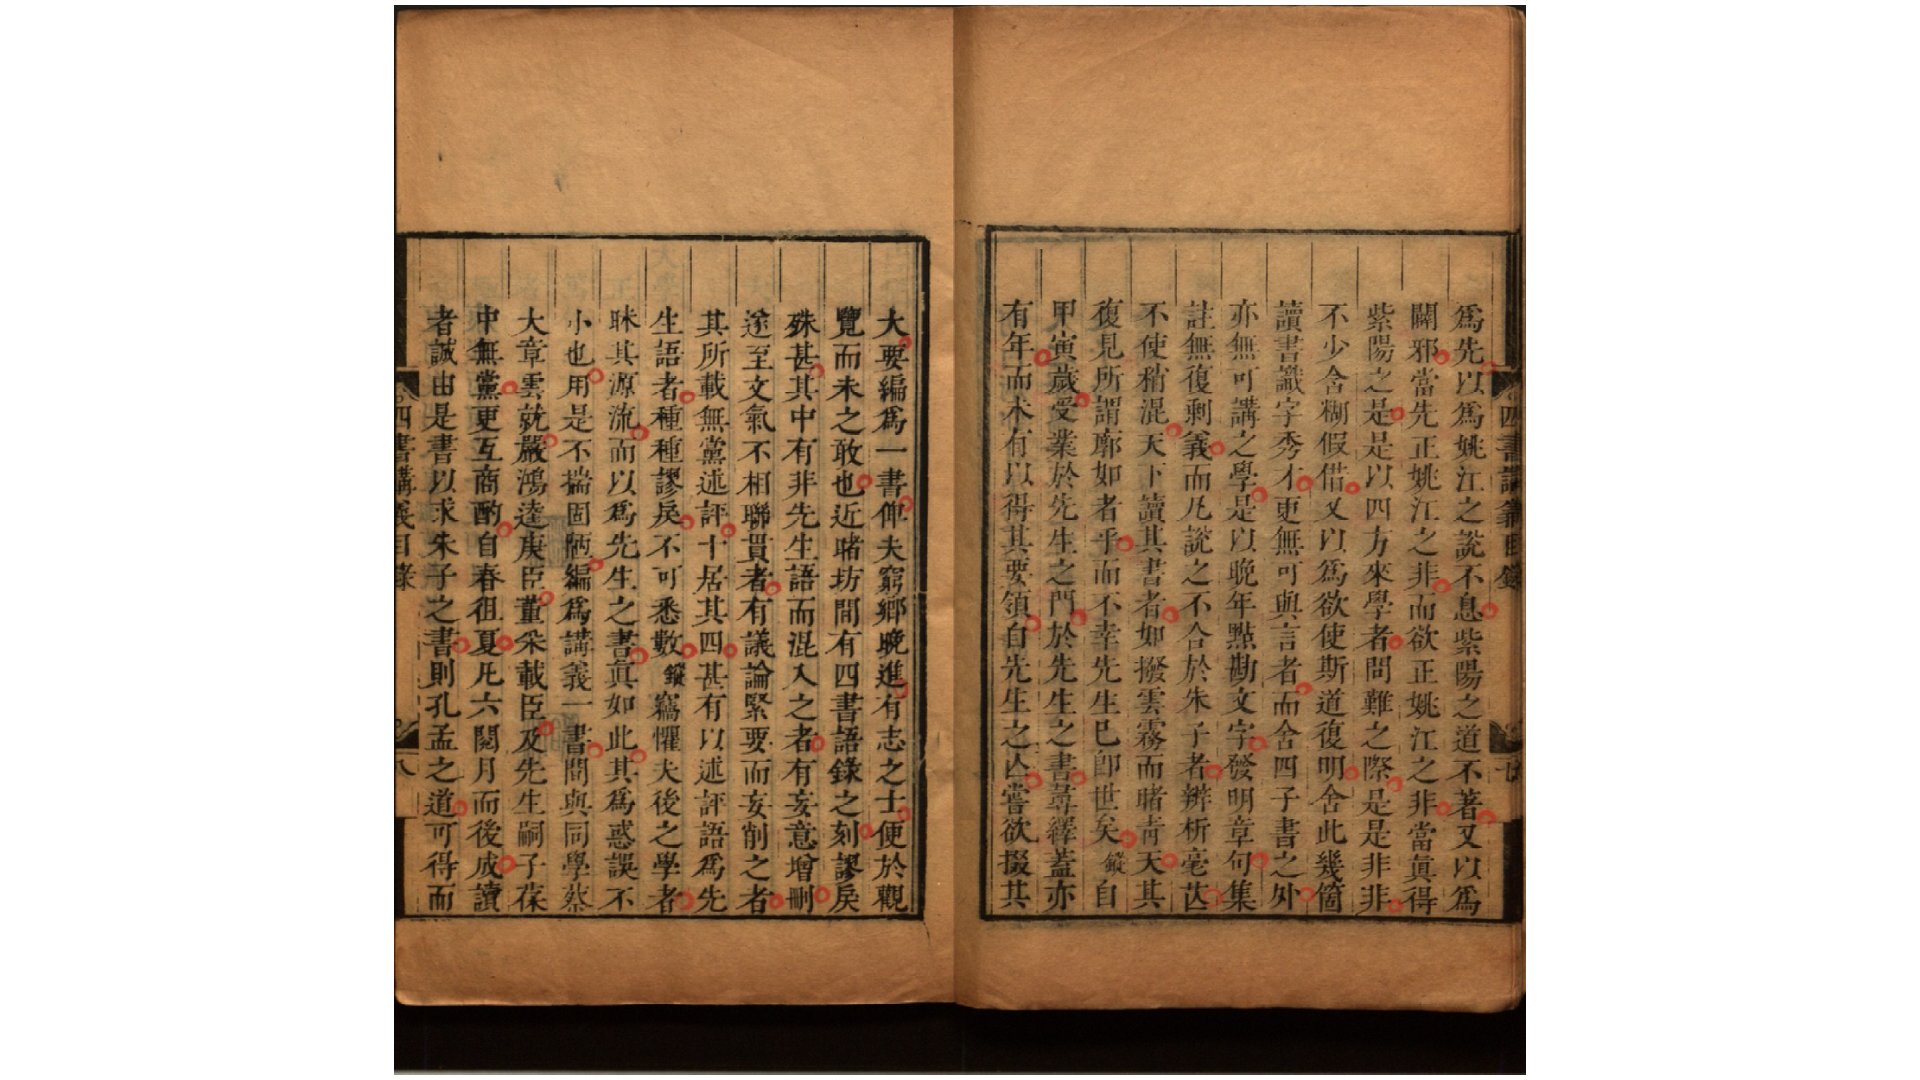 爲先以爲姚江之說不息紫陽之道不著又以爲
闢邪當先正姚江之非而欲正姚江之非當眞得
紫陽之是是以四方來學者問難之際是是非非
不少含糊假借又以爲欲使斯道復明舍此幾箇
讀書識字秀才更無可與言者而舍四子書之外
亦無可講之學是以晚年點勘文字發明章句集
註無復剩義而凡說之不合於朱子者辨析毫芒
不使稍混天下讀其書者如撥雲霧而睹靑天其
復見所謂廓如者乎而不幸先生已卽世矣鏦自
甲寅歲受業於先生之門於先生之書尋繹蓋亦
有年而未有以得其要領自先生之亡嘗欲掇其
大要編爲一書俾夫窮鄉晚進有志之士便於觀
覽而未之敢也近睹坊間有四書語錄之刻謬戾
殊甚其中有非先生語而混入之者有妄意增刪
遂至文氣不相聯貫者有議論緊要而妄削之者
其所載無黨述評十居其四甚有以述評語爲先
生語者種種謬戾不可悉數鏦竊懼夫後之學者
昧其源流而以爲先生之書眞如此其爲惑誤不
小也用是不揣固陋編爲講義一書間與同學蔡
大章雲就嚴鴻逵庚臣董采載臣及先生嗣子葆
中無黨更互商酌自春徂夏凡六閱月而後成讀
者誠由是書以求朱子之書則孔孟之道可得而
四書講義目錄
八